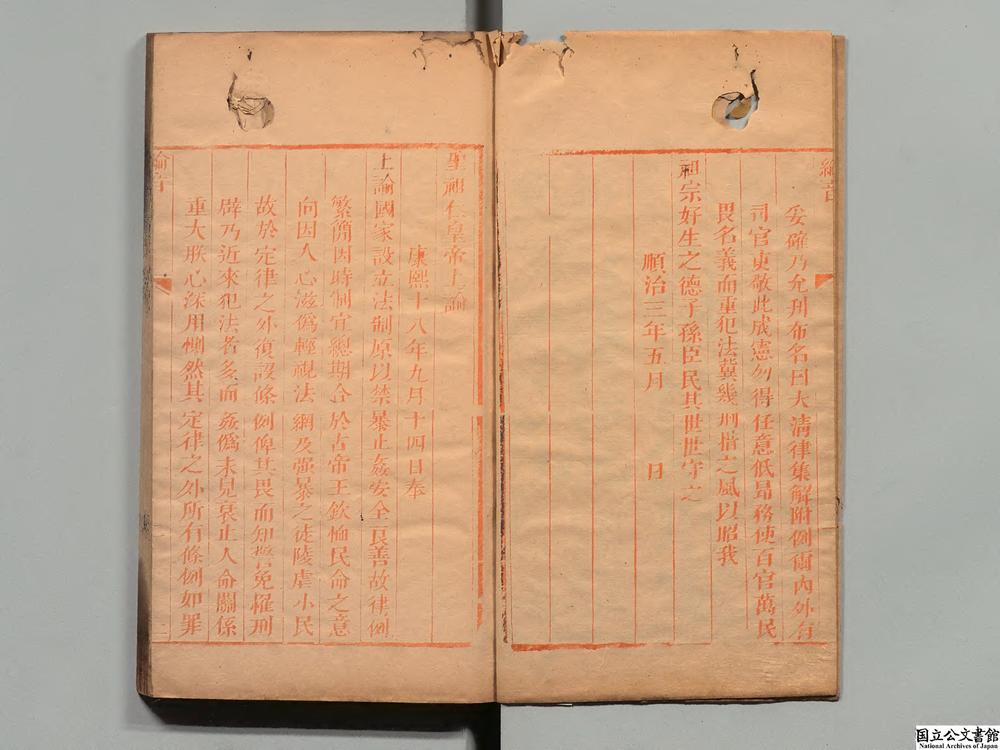 綸音
妥確乃允刋布名曰大清律集解附例爾內外有
司官吏敬此成憲勿得任意低昻務使百官萬民
畏名義而重犯法冀幾刑措之風以昭我
祖宗好生之德子孫臣民其世世守之
順治三年五月　　日
聖祖仁皇帝上諭
康熙十八年九月十四日奉
上諭國家設立法制原以禁暴止姦安全良善故律例
繁簡因時制宜總期合於古帝王欽恤民命之意
向因人心滋僞輕視法網及强暴之徒陵虐小民
故於定律之外復設條例俾其畏而知警免罹刑
辟乃近來犯法者多而姦僞未見衰止人命關係
重大朕心深用惻然其定律之外所有條例如罪
國立公文書館
National Archives of Japan